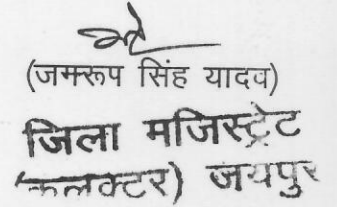 (जमरूप सिंह यादव)
जिला मजिस्ट्रेट
(कलक्टर) जयपुर